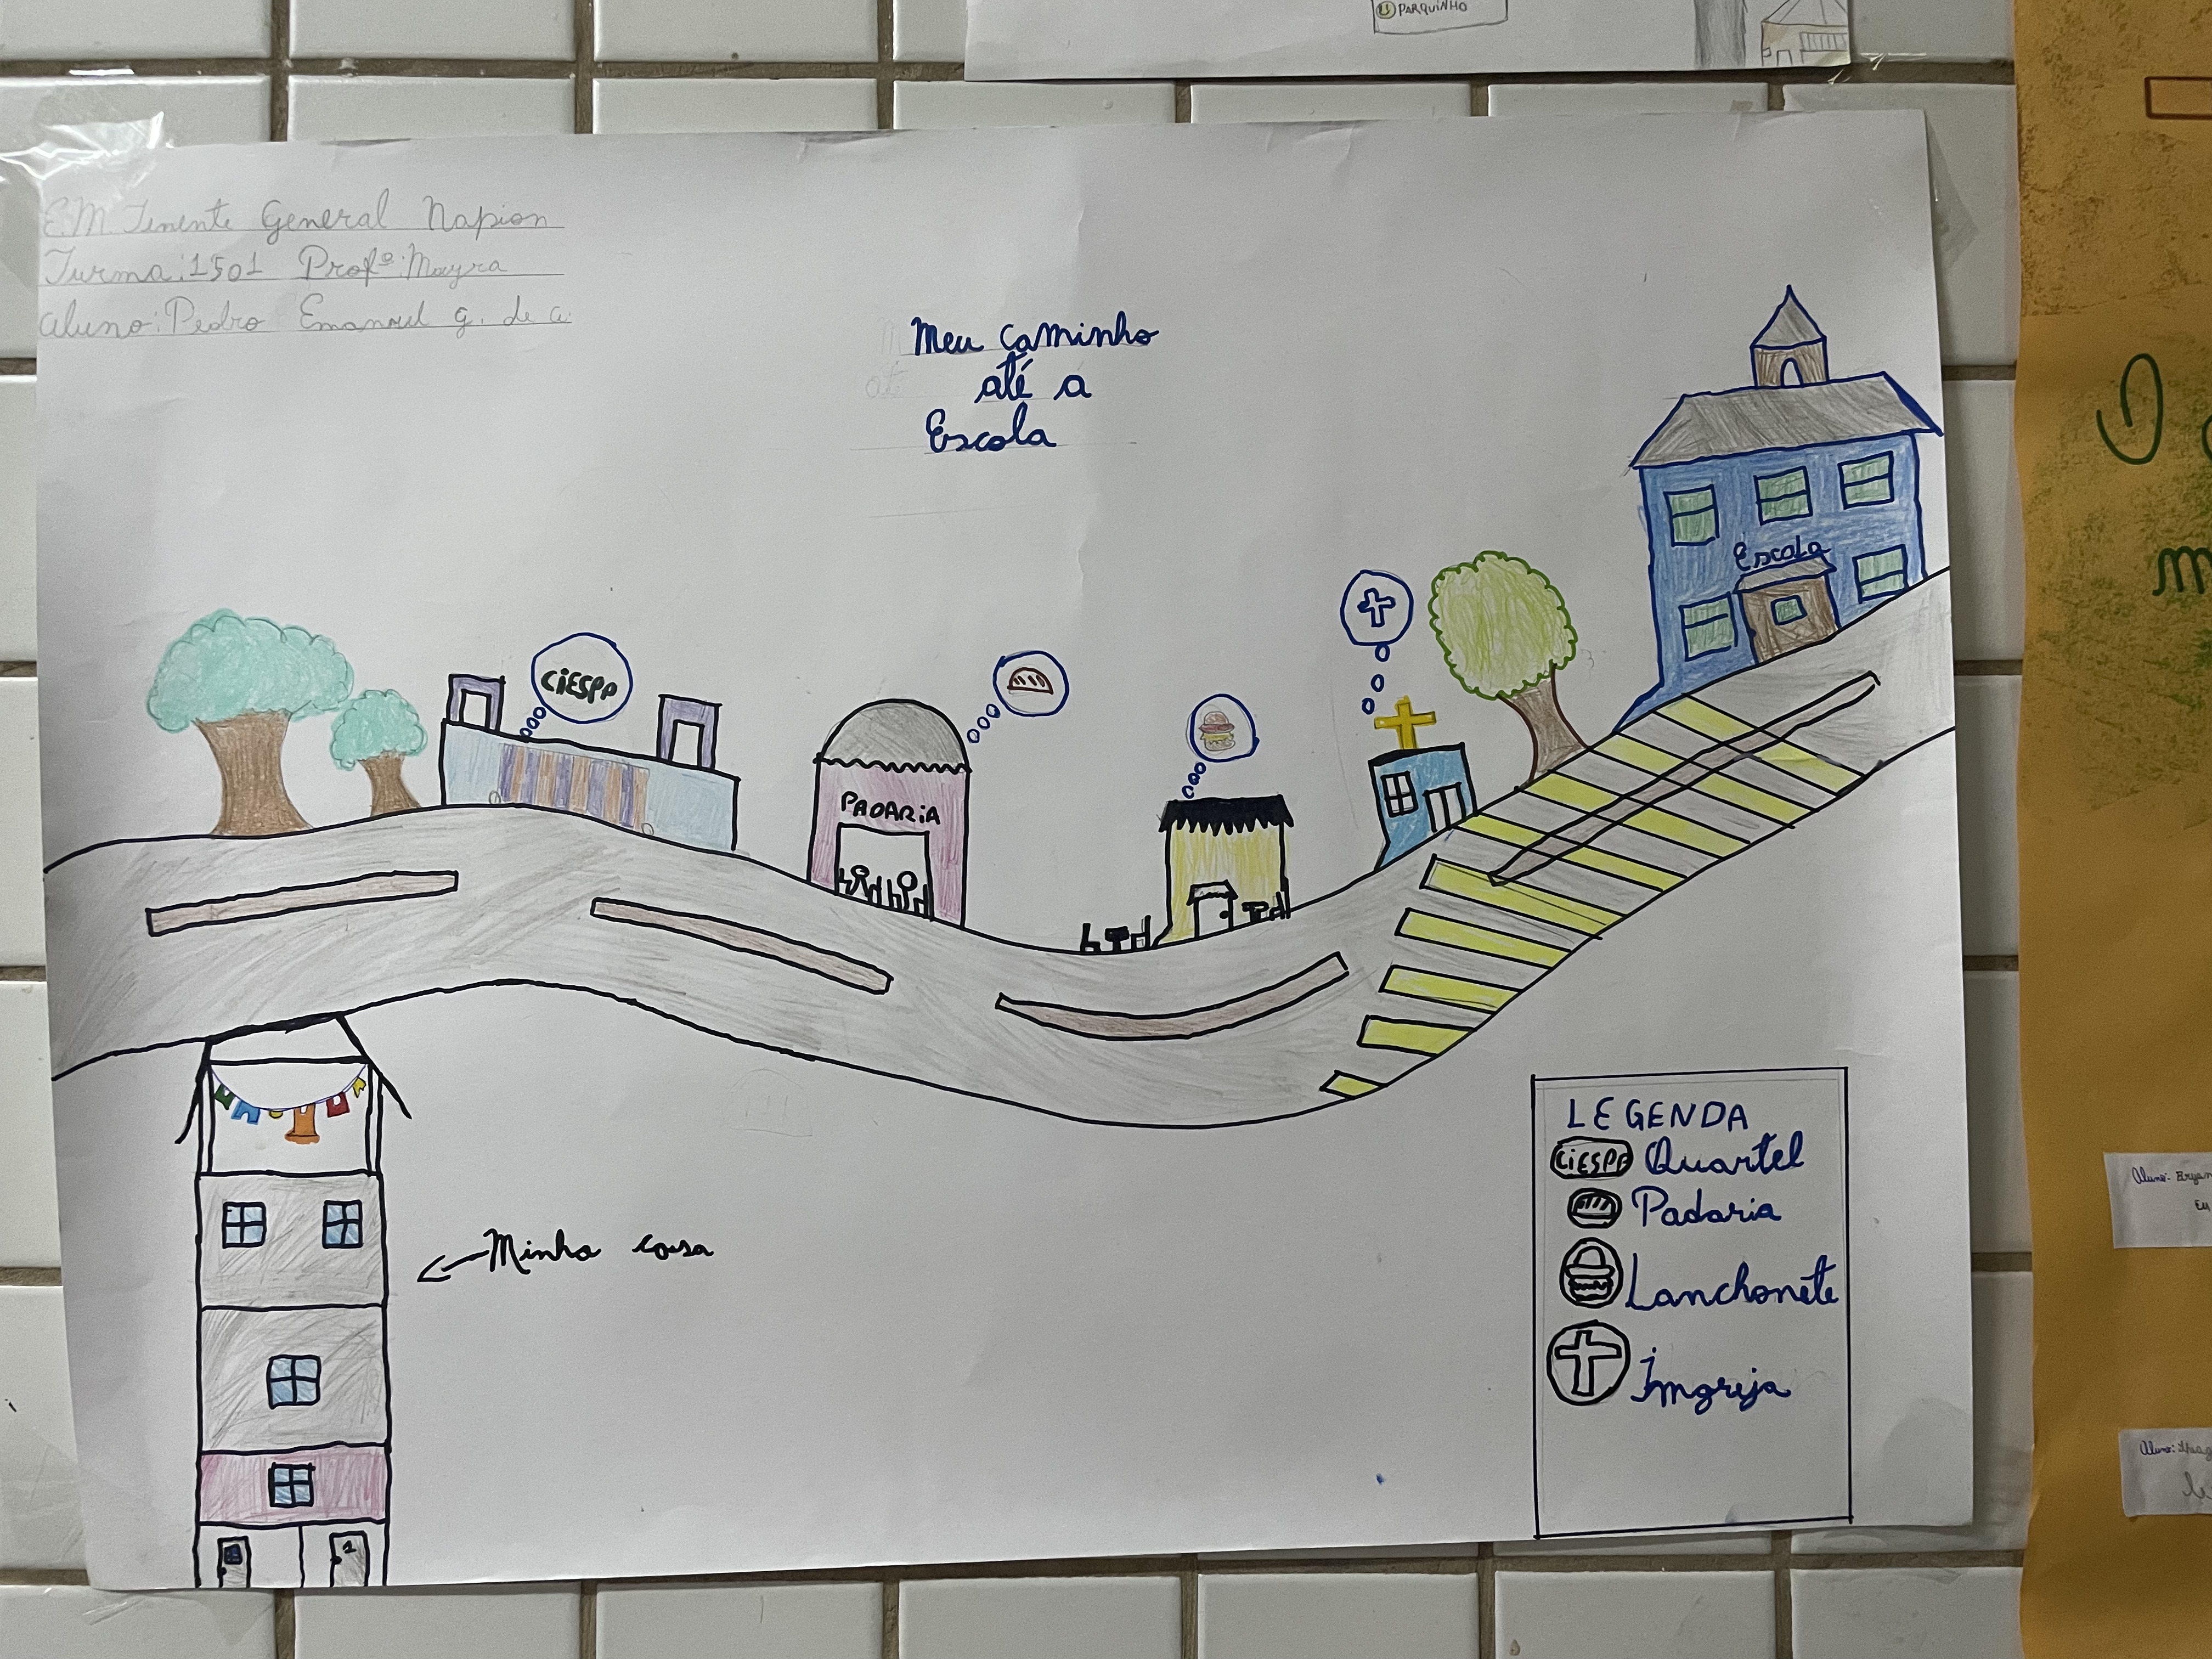 PARQUINHO
E.M. Tenente General Napion
Turma: 1501 Profª: Mayra
Aluno: Pedro Emanuel G. de A.
Meu caminho
até a
Escola
Escola
CIESPP
PADARIA
Minha casa
LEGENDA
CIESPP Quartel
Padaria
Lanchonete
Imgreja
O
m
Aluno: Bryan
Eu
Aluno: Thiag